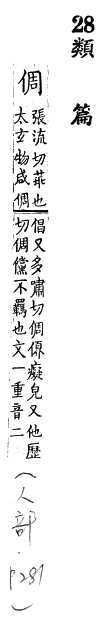 28
類篇
倜
張流切也
太玄物咸倜
倡又多嘯切倜癡皃又他歷
切倜儻不羈也文一重音二
(人部·P281)